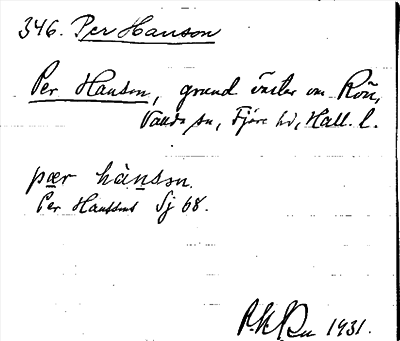 346. Per Hanson
Per Hanson, grund väster om Rön,
Vallda sn, Fjäre hd, Hall. l.
pær hànson.
Per Hanssons Sj 68.
1931.